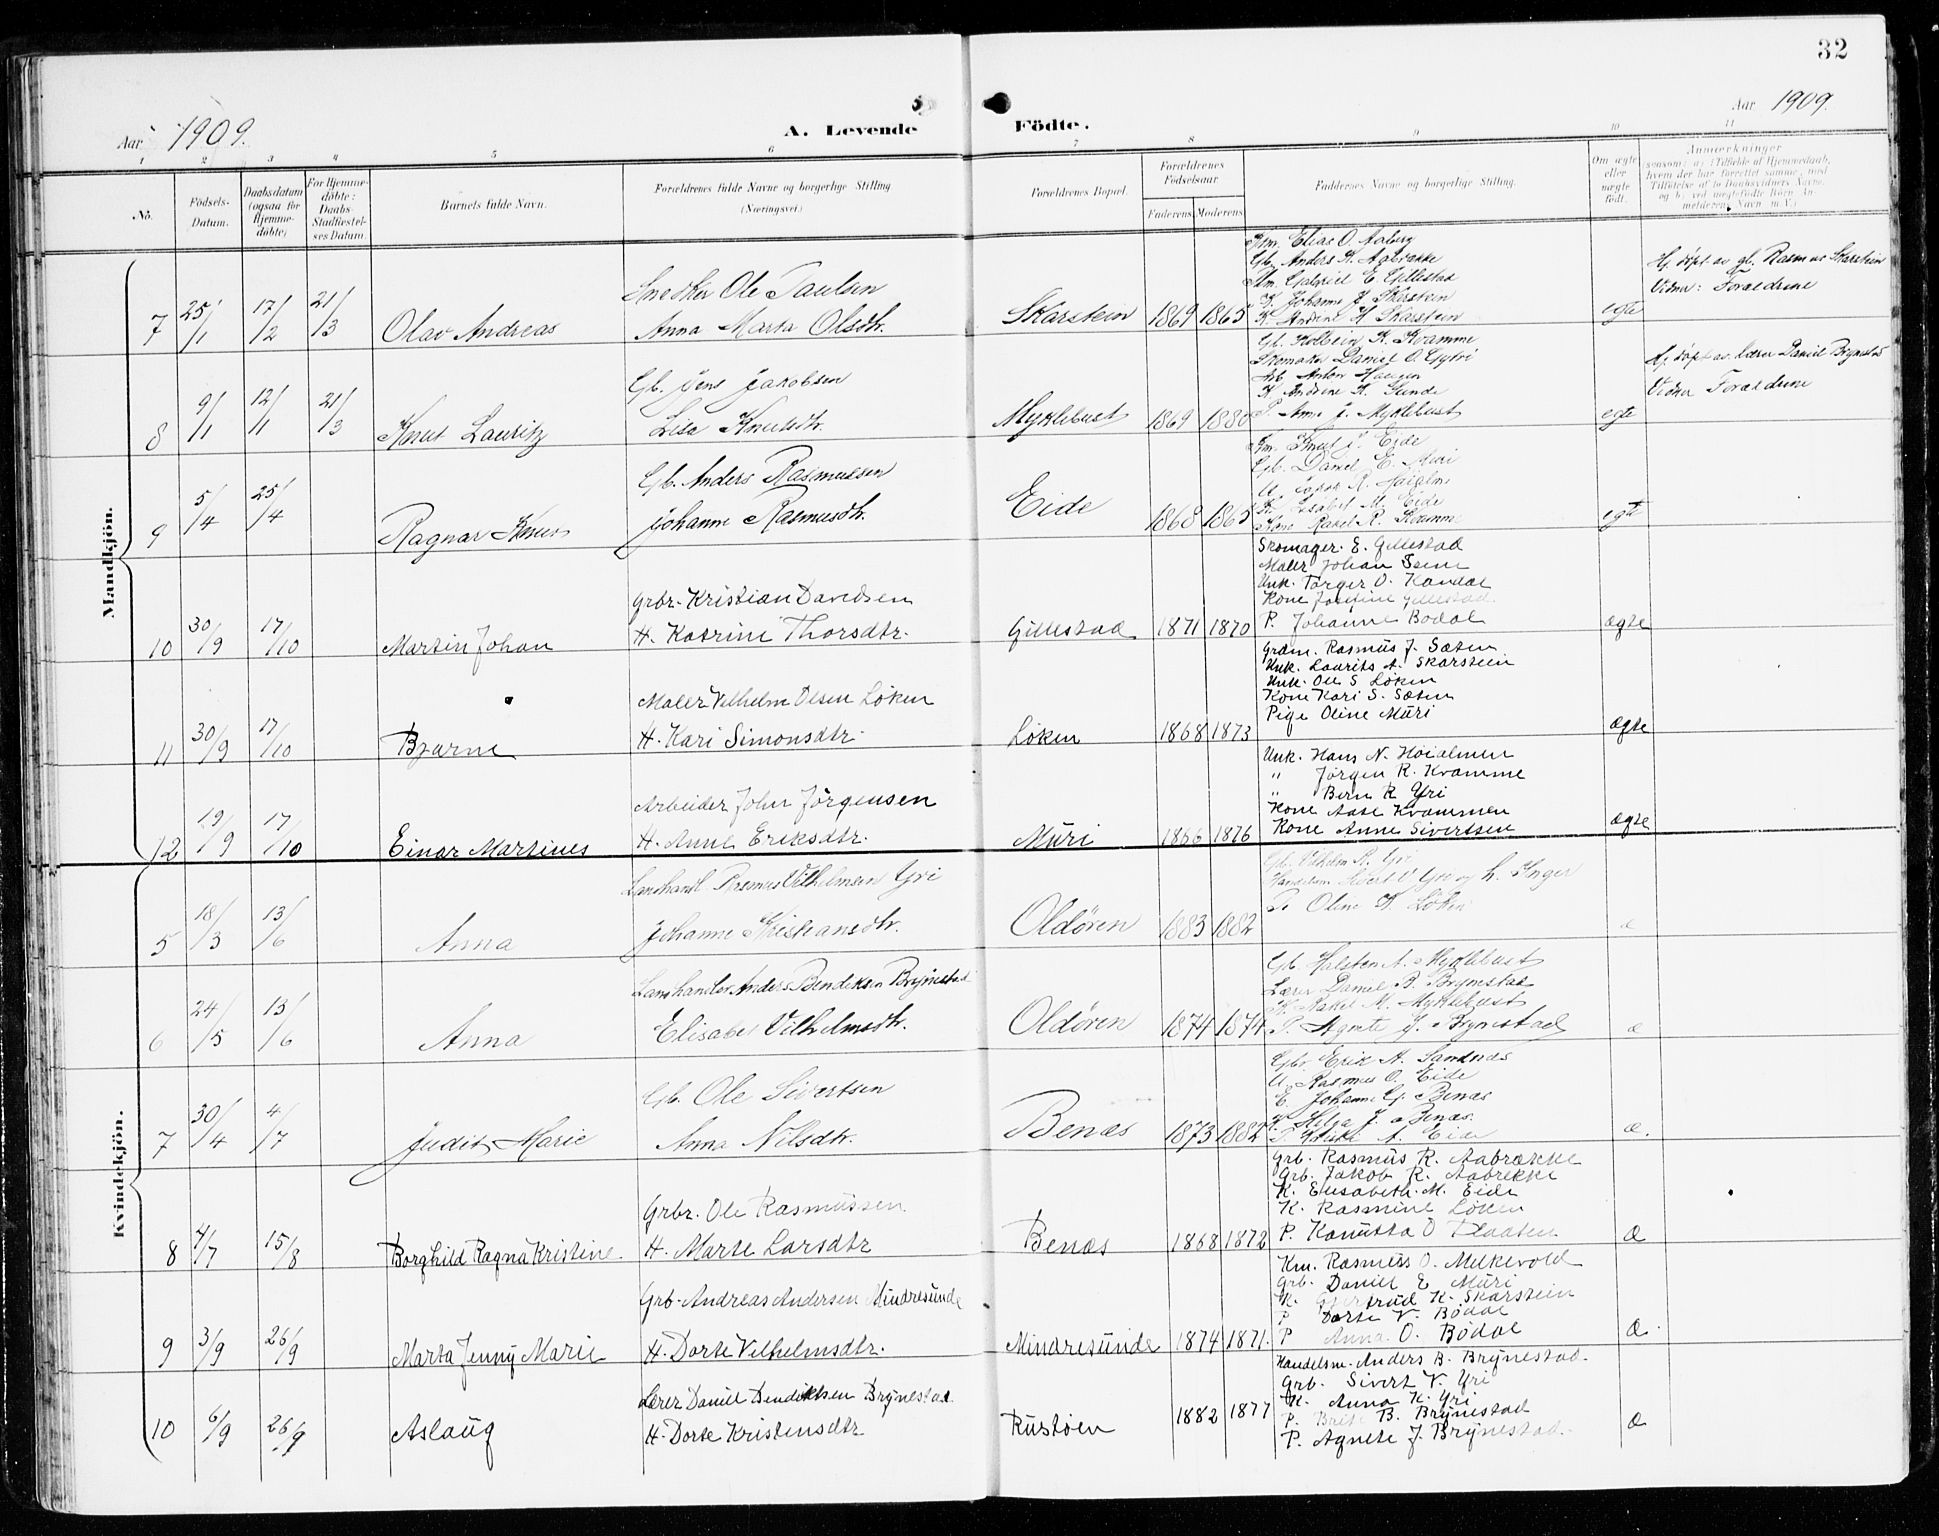 32
Aar 1909.
A. Levende
Födte.
Aar 1909.
1
2
3
4
5
6
7
8
9
10
11
No.
Födsels-
Datum.
Daabsdatum
(ogsaa for
Hjemme-
döbte)
For Hjemme-
döbte:
Daabs-
Stadfæstel-
ses Datum.
Barnets fulde Navn.
Forældrenes fulde Navne og borgerlige Stilling
(Næringsvei.)
Forældrenes Bopæl.
Forældrenes
Födselsaar
Faderens
Moderens
Faddernes Navne og borgerlige Stilling.
Om ægte
eller
uægte
födt.
Anmærkninger
(saasom: a) i Tilfælde af Hjemmedaab,
hvem der har forrettet samme, med
Tilföielse af to Daabsvidners Navne,
og b) ved uægtefödte Börn An-
melderens Navn m. V.)
Mandkjön.
7 25/1 17/2 21/3 Olav Andreas
Snedker Ole Paulsen
Anna Marta Olsdtr.
Skarstein 1869 1865
Km. Elias O. Aaberg
Gb. Anders K. Aabrække
Km. Gabriel E. Gillestad
K. Johanne J. Skarstein
K. Andrine H. Skarstein
egte
Hj. døpt av gb. Rasmus Skarstein
Vidner: Forældrene
8 9/1 12/1 21/3 Knut Lauritz
Gb. Jens Jakobsen
Lisa Knutsdtr.
Myklebust 1869 1880
Gb. Kolbein K. Kvamme
Skomaker Daniel O.
Arb. Anton
K. Andrine K. Sunde
P. Anne J. Myklebust
egte
Hj. døpt av lærer Daniel Brynestad
Vidner Forældrene
9 5/4 25/4 Ragnar Knut
Gb. Anders Rasmussen
Johanne Rasmusdtr.
Eide 1868 1865
Km. Knut J. Eide
Gb. Daniel E. Muri
K. Elisabet M. Eide
Kone Rakel R. Kvamme
egte
10 30/9 17/10 Martin Johan
Grbr. Kristian Davidsen
H. Katrine Thorsdtr.
Gillestad 1871 1870
Skomager. E. Gillestad
Maler Johan Teim
Unk. Torger O. Kandal
Kone Josefine Gillestad.
P. Johanne Bødal
ægte
11 30/9 17/10 Bjarne
Maler Vilhelm Olsen Løken
H. Kari Simonsdtr.
Løken 1868 1873
Grdm. Rasmus J. Sæten
Unk. Laurits A. Skarstein
Unk. Ole S. Løken
Kone Kari S. Sæten
Pige Oline Muri
ægte
12 19/9 17/10 Einar Martinus
Arbeider John Jørgensen
H. Anne Eriksdtr.
Muri 1866 1876
Unk. Hans N. Høialmen
" Jørgen R. Kvamme
" Bern R. Yri
Kone Aase Kvammen
Kone Anne Sivertsen
ægte
Kvindekjön.
5 18/3 13/6 Anna
Landhandl. Rasmus Vilhelmsen Yri
Johanne Kristiansdtr.
Oldøren 1883 1882
Gb. Vilhelm R. Yri
Handelsm Sivert V. Yri og h. Inger
P. Oline K. Løken
æ
6 24/5 13/6 Anna
Landhandler Anders Bendiksen Brynestad
Elisabet Vilhelmsdtr.
Oldøren 1874 1874
Gb. Halsten A. Myklebust
Lærer Daniel B. Brynestad
K. Rakel M. Myklebust
P. Agnete J. Brynestad
æ
7 30/4 4/7 Judit Marie
Gb. Ole Sivertsen
Anna Nilsdtr.
Benæs 1873 1882
Gb. Erik A. Sandnæs
U. Rasmus O. Eide
E. Johanne G. Benæs
K. Helga J. Benæs.
P. A. Eide
æ.
8 4/7 15/8 Borghild Ragna Kristine
Grbr. Ole Rasmussen.
H. Marte Larsdtr
Benæs 1868 1872
Grb. Rasmus R. Aabrække
Grb. Jakob R. Aabrekke
K. Elisabeth. M. Eide
K. Rasmine Løken
P. Kanutta O Flaaten
Æ
9 3/9 26/9 Marta Jenny Marie
Grb. Andreas Andersen Mindresunde
H. Dorte Vilhelmsdtr.
Mindresunde 1874 1871.
Km. Rasmus O. Melkevold
Grb. Daniel E. Muri
K. Gjertrud K. Skarstein
P Dorte V. Bødal
P Anna O. Bødal
Æ.
10 6/9 26/9 Aslaug
Lærer Daniel Bendiktsen Brynestad.
H. Dorte Kristensdtr
Rustøen 1882 1877
Handelsm. Anders B. Brynestad.
Grb. Sivert V. Yri
K. Anna K. Yri
P. Brite B. Brynestad
P. Agnete J. Brynestad.
Æ